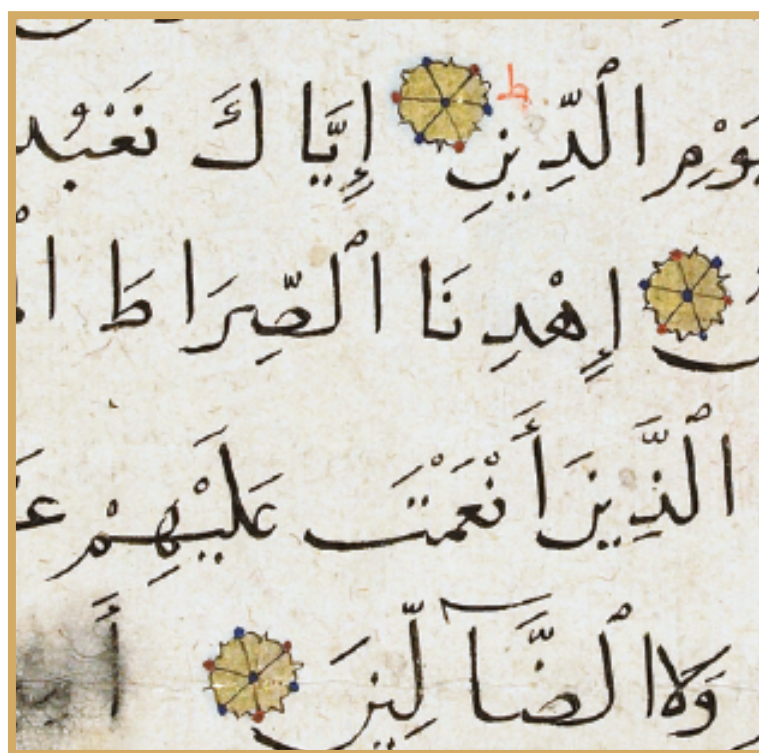 يَوْمِ ٱلدِّينِ ط إِيَّاكَ نَعْبُد
إِهْدِنَا ٱلصِّرَاطَ
ٱلَّذِينَ أَنْعَمْتَ عَلَيْهِمْ
وَلَا ٱلضَّآلِّينَ